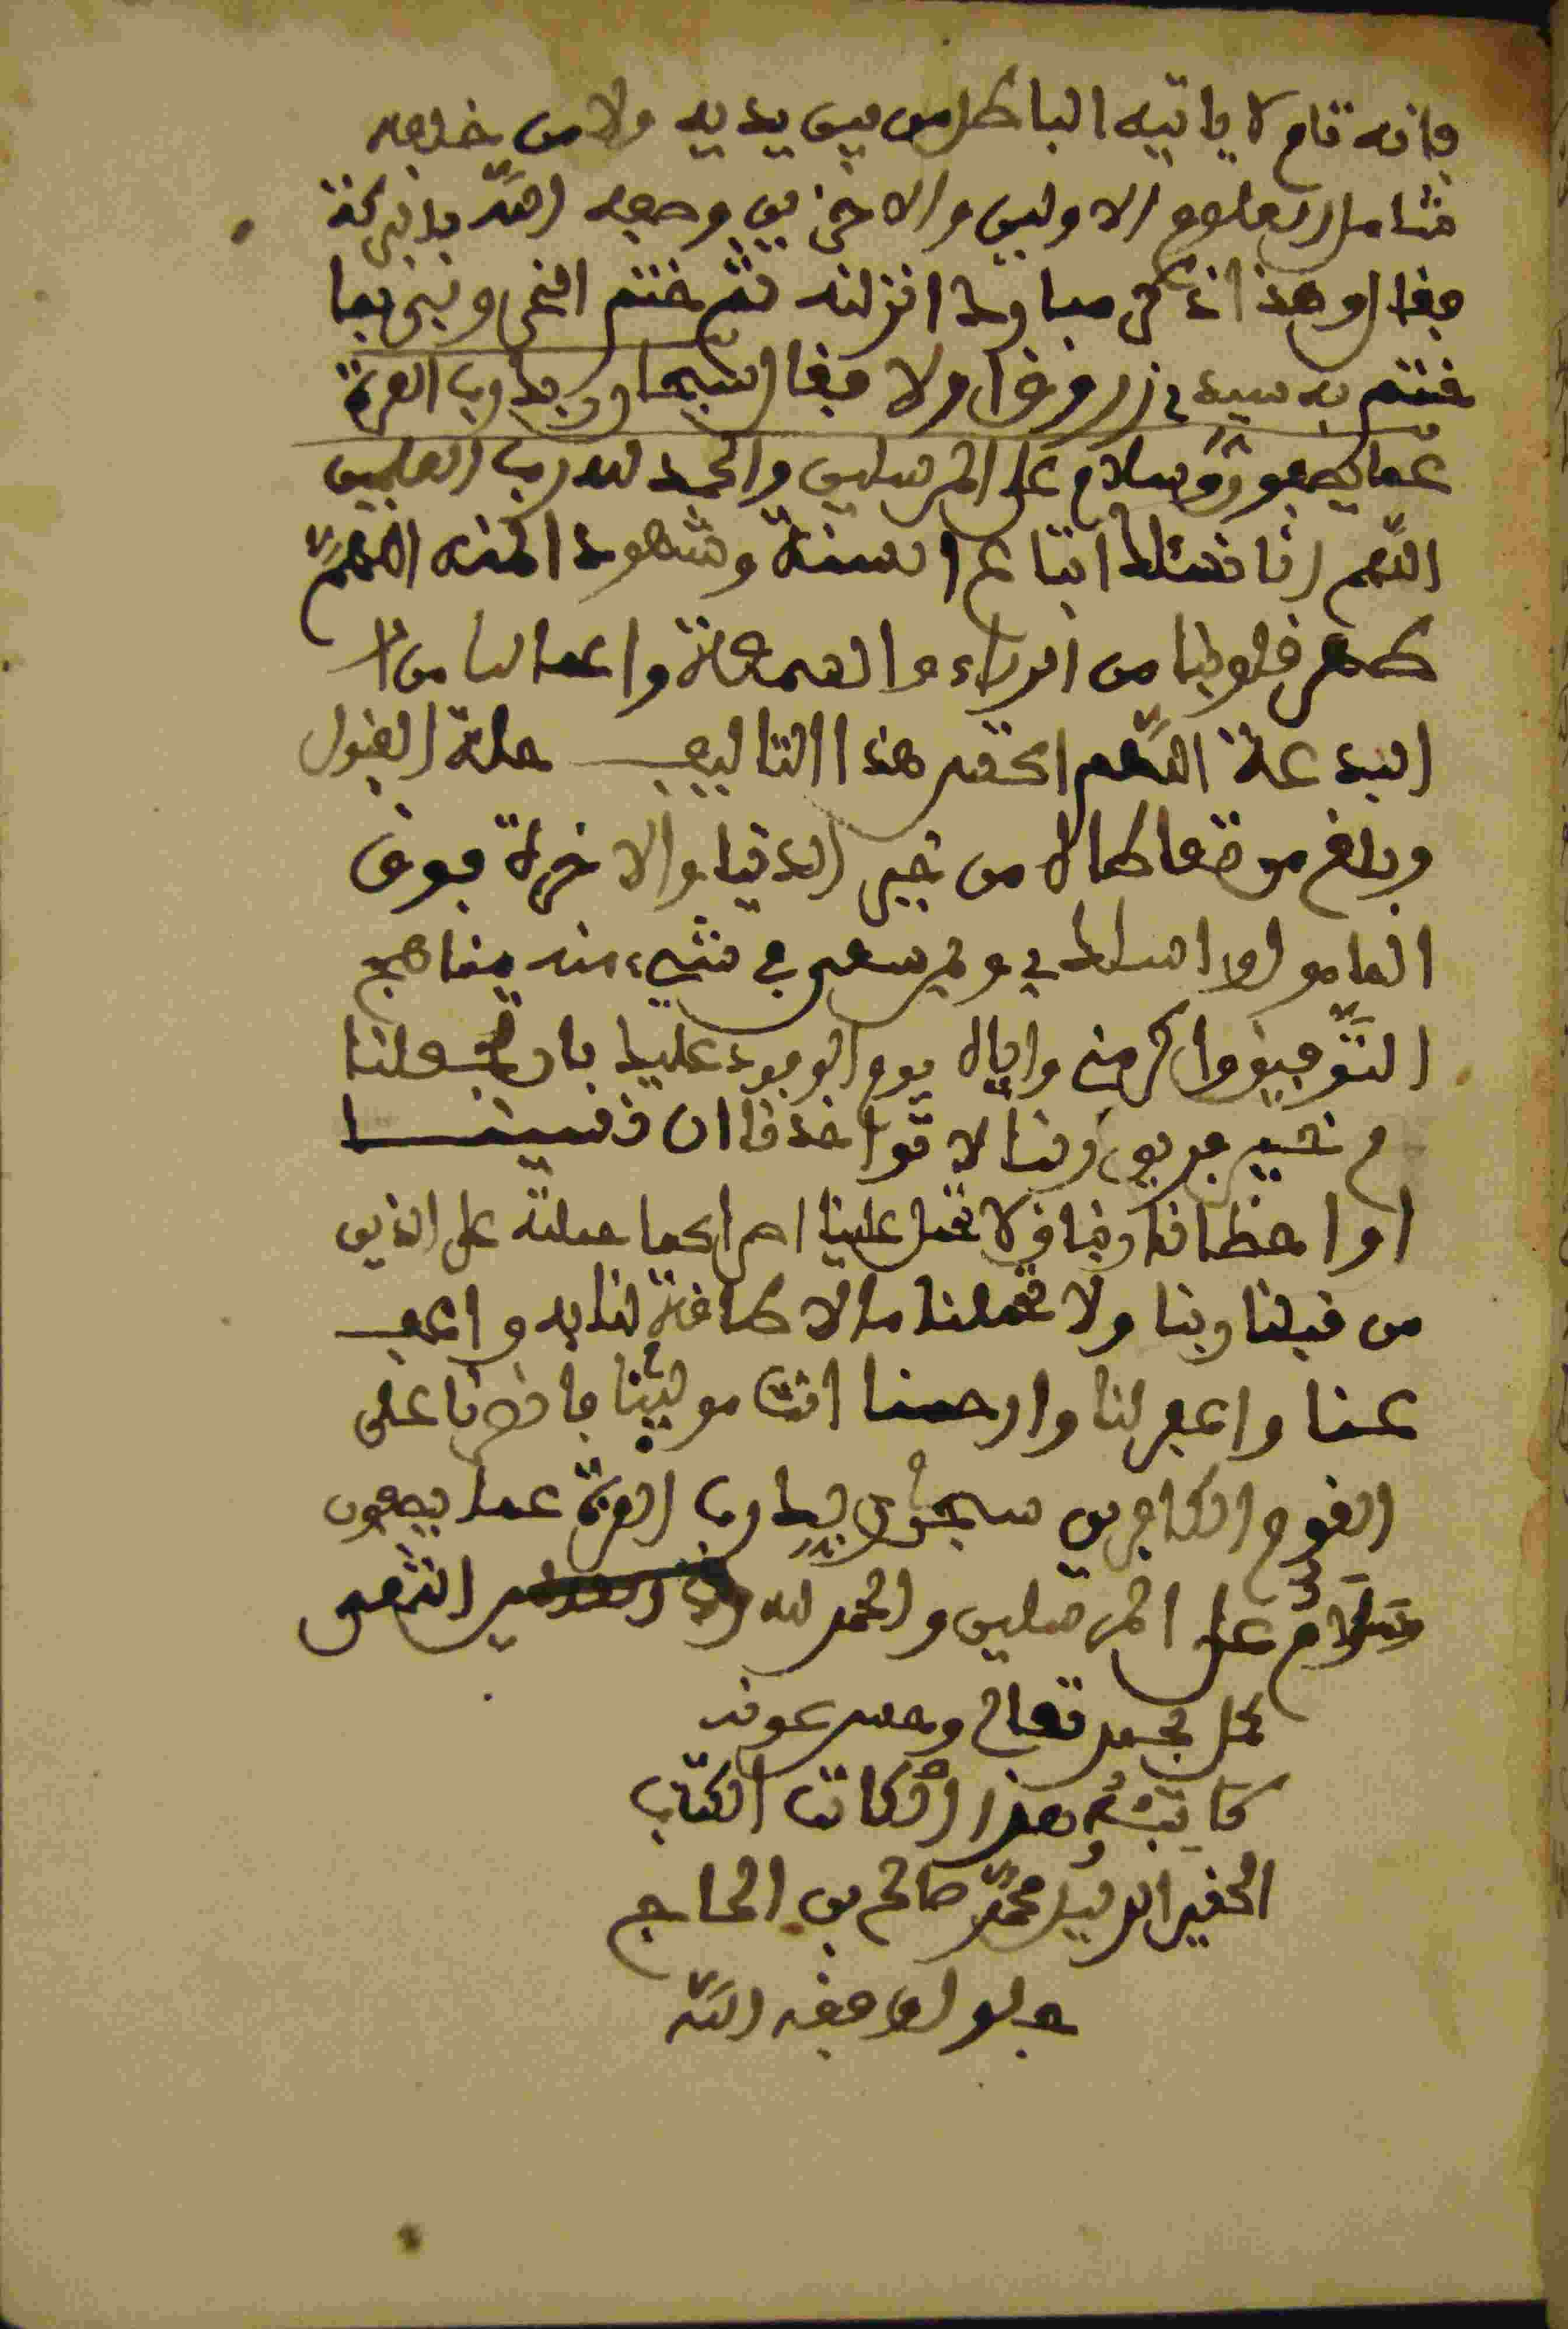 فانه تام لا ياتيه الباطل من بين يديه ولا من خلفه
شامل لعلوم الاولين والاخرين وصفه الله بالبركة
فقال وهذا ذكر مبارك انزلنه ثم ختم
ختم به سيدي زروق فقال سبحان ربك رب العزة
عما يصفون وسلام على المرسلين والحمد لله رب العلمين
اللهم انا نسئلك اتباع السنة وشهود المنه اللهم
طهر قلوبنا من الرياء والسمعة واعمالنا من
البدعة اللهم اكس هذا التاليف حلة القبول
وبلغ من تعاطاه من خير الدنيا والاخرة فوق
المامول واسلك بي وبمن سعى في شيء منه مناهج
التوفيق واكرمني واياه يوم الوفود عليك بان تجعلنا
من خير فريق ربنا لا تواخذنا ان نسينا
او اخطانا ربنا ولا تحمل علينا اصرا كما حملته على الذين
من قبلنا ربنا ولا تحملنا ما لا طاقة لنا به واعف
عنا واغفر لنا وارحمنا انت مولينا فانصرنا على
القوم الكافرين سبحن ربك رب العزة عما يصفون
وسلام على المرسلين والحمد لله رب العلمين انتهى
كمل بحمد تعالى وحسن عونه
كاتبه هذا الكاتب الكتب
الحقير الذليل محمد صالح بن الحاج
وفقه الله